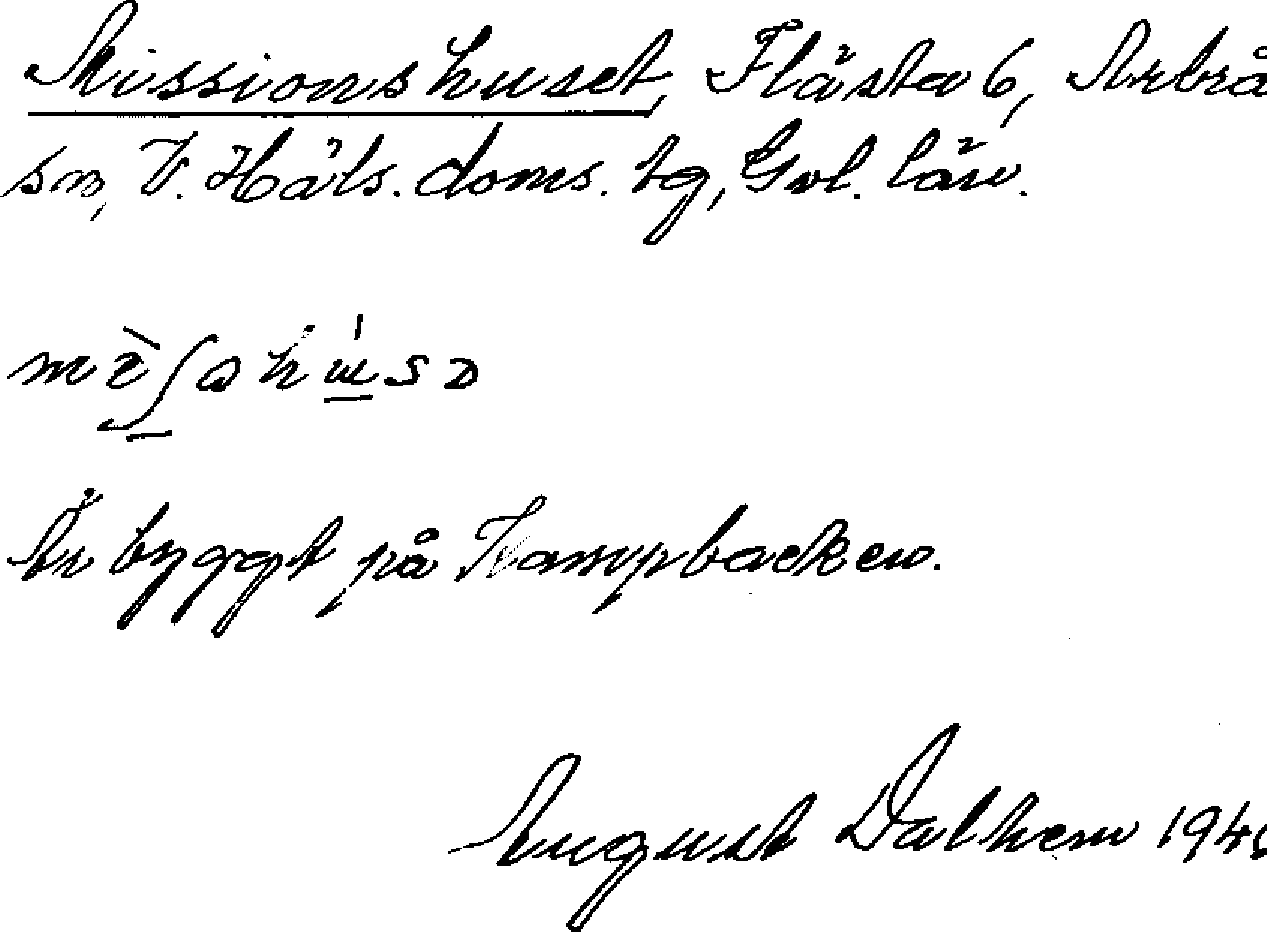 Missionshuset, Flästa 6, Arbrå
sn, V. Häls. doms. tg, Gvl. län.
Är byggt på Kampbacken.
August Dalhem